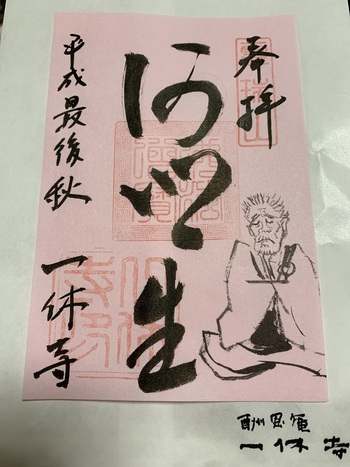 奉拝
何似生
平成最後秋 一休寺
酬恩庵
一休寺